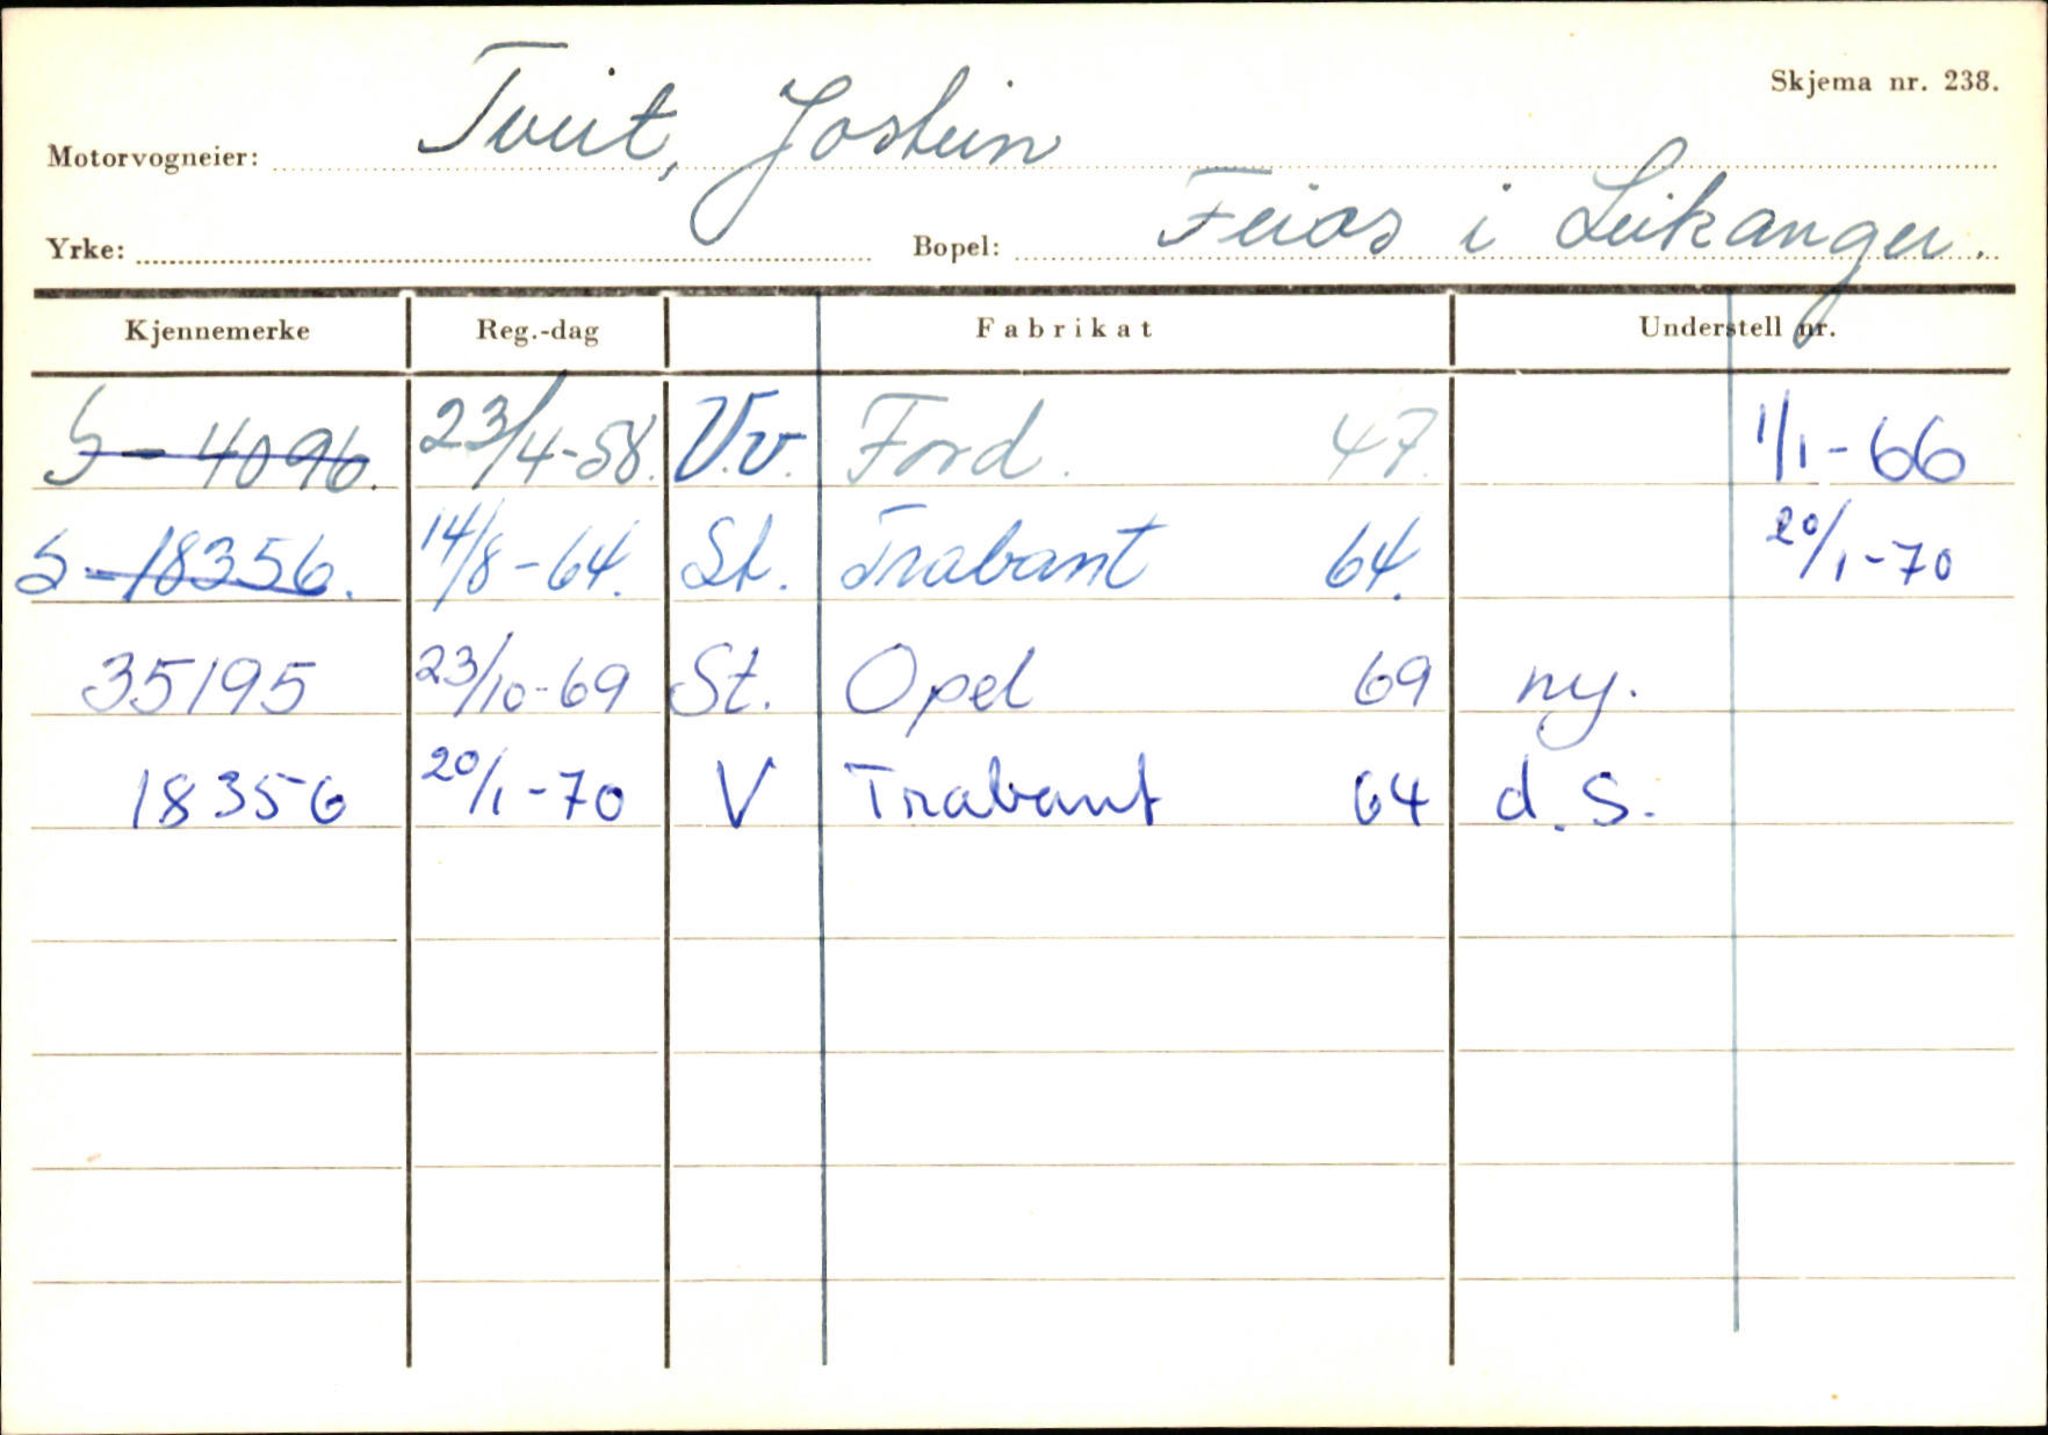 Skjema nr. 238.
Motorvogneier: Tveit, Jostein
Yrke: Bopel: Feios i Leikanger.
Kjennemerke Reg.-dag Fabrikat Understell nr.
S-4096. 23/4-58. V.v. Ford. 47. 1/1-66
S-18356. 14/8-64. St. Trabant 64. 20/1-70
35195 23/10-69 St. Opel 69 ny.
18356 20/1-70 V Trabant 64 d.S.